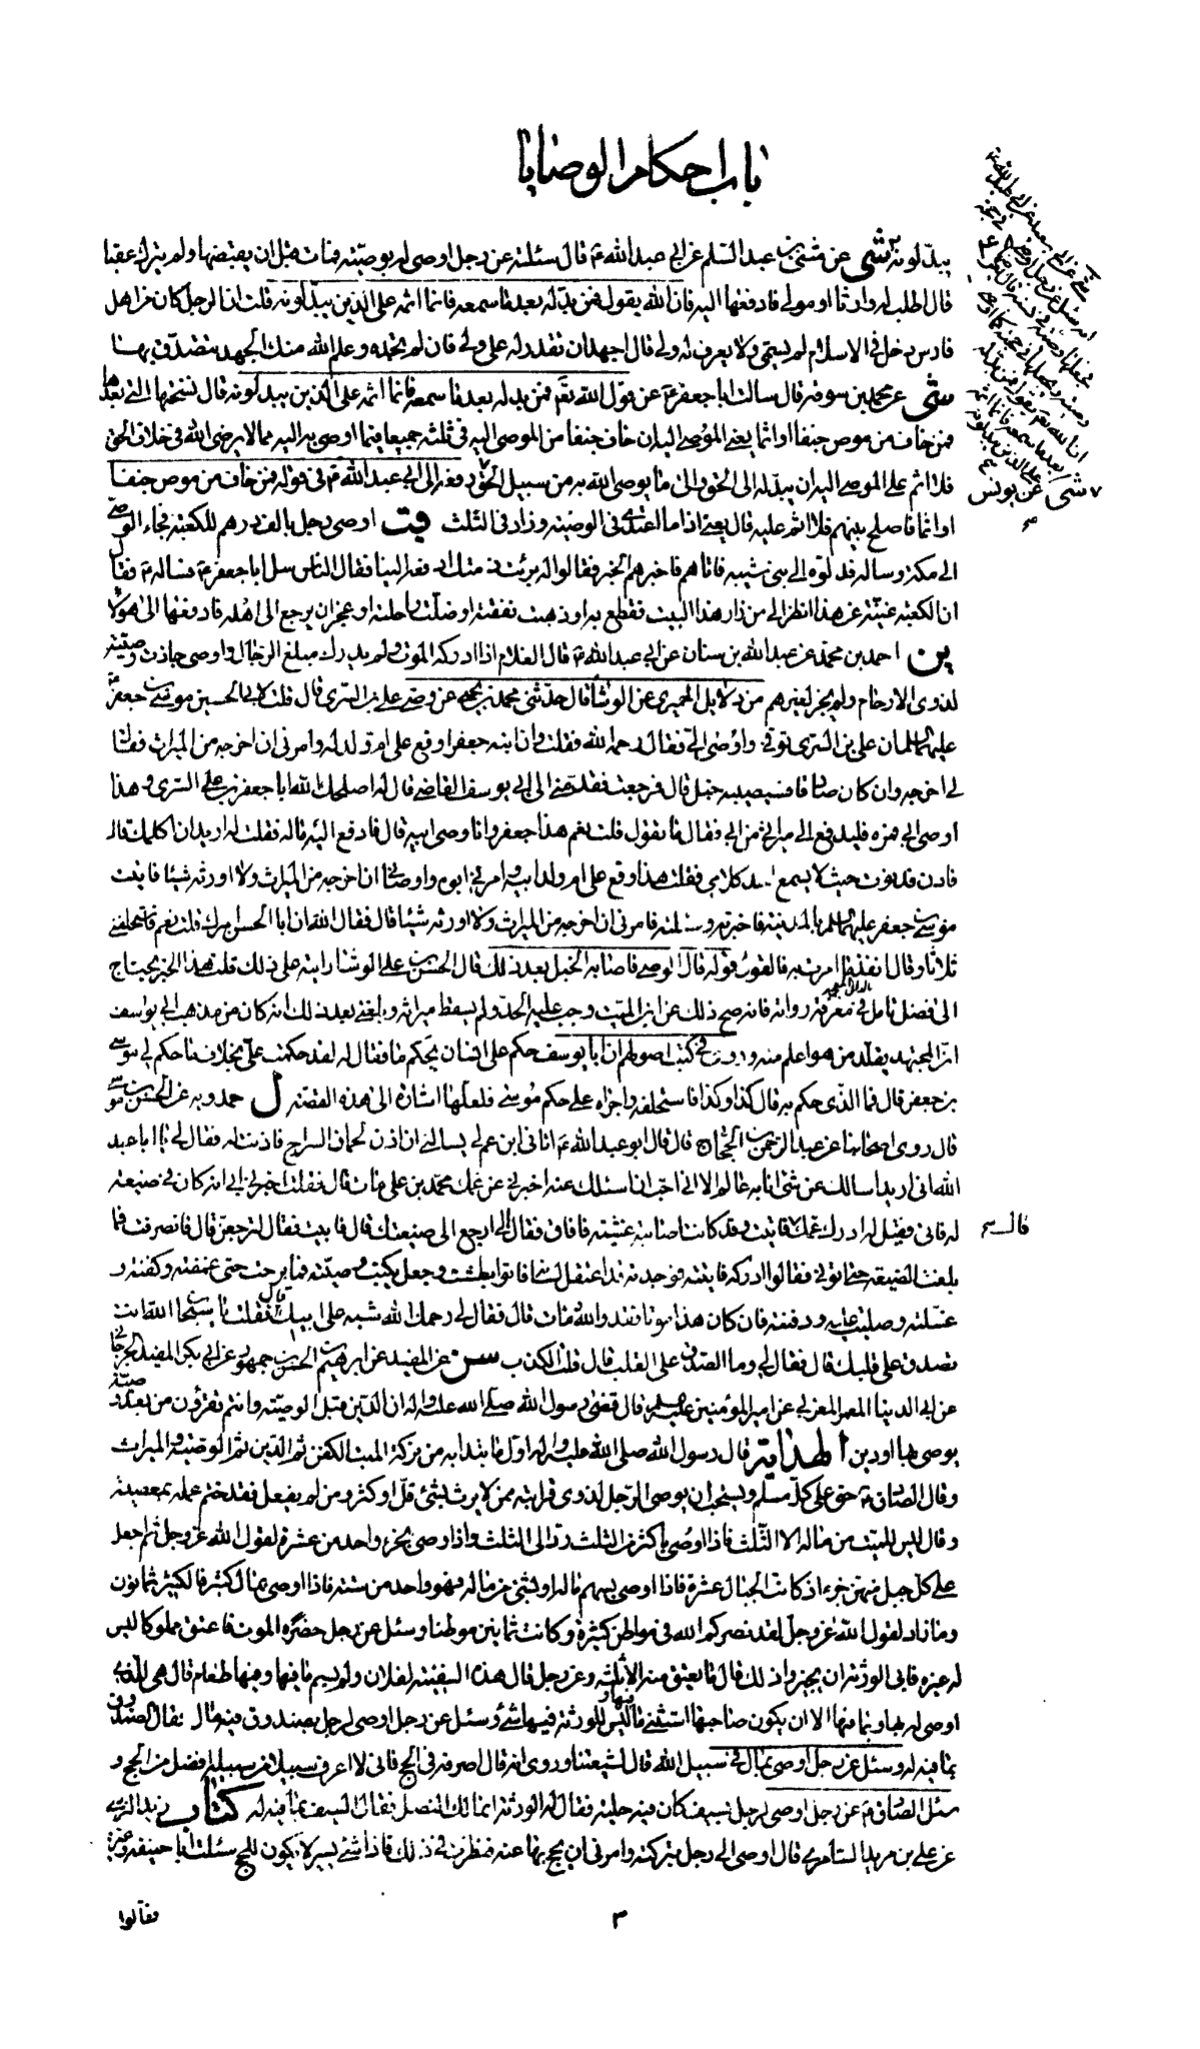 باب احكام الوصايا
يبدّلونه شى عن مثنى بن عبد السّلم عن ابى عبد الله ع قال سئلته عن رجل اوصى له بوصيّته فمات قبل ان يقبضها ولم يترك عقبا
قال اطلب له وارثا او مولى فادفعها اليه فان الله يقول فمن بدّله بعد ما سمعه فانما اثمه على الذين يبدّلونه قلت ان الرجل كان من اهل
فارس دخل فى الاسلام لم يسمّى ولا يعرف له ولى قال اجهد ان تقدر له على ولى فان لم تجده وعلم الله منك الجهد تتصدّق بها
شى عن محمد بن سوقه قال سالت ابا جعفر ع عن قول الله تع فمن بدله بعد ما سمعه فانما اثمه على الذين يبدلونه قال نسختها التى بعدها
فمن خاف من موص جنفا او اثما يعنى الموصى اليه ان خاف جنفا من الموصى اليه فى ثلثه جميعا فيما اوصى به اليه مما لا يرضى الله فى خلاف الحق
فلا اثم على الموصى اليه ان يبدّله الى الحق والى ما يرضى الله به من سبيل الحق رفعه الى ابى عبد الله ع فى قوله فمن خاف من موص جنفا
او اثما فاصلح بينهم فلا اثم عليه قال يعنى اذا ما اعتدى فى الوصيّة وزاد فى الثلث اوصى رجل بالف درهم للكعبة فجاء الوصى
الى مكة وساله فدلوه الى بنى شيبه فاتاهم فاخبرهم الخبر فقالوا له برئت ذمتك ادفعه الينا فقال الناس سل ابا جعفر ع فساله ع فقال
ان الكعبة غنيّة عن هذا انظر الى من زار هذا البيت فقطع به او ذهبت نفقته او ضلّت راحلته او عجز ان يرجع الى اهله فادفعها الى هؤلاء
ين احمد بن محمد عن عبد الله بن سنان عن ابى عبد الله ع قال الغلام اذا ادركه الموت ولم يدرك مبلغ الرجال واوصى جازت وصيّته
لذوى الارحام ولم يجز لغيرهم من دلايل الحميرى عن الوشا قال حدّثنى محمد بن يحيى عن وصى على بن السرى قال قلت لابى الحسين موسى بن جعفر
عليهما السلم ان على بن السرى توفى واوصى الىّ فقال رحمه الله فقلت وان ابنه جعفر اوقع على ام ولد له وامرنى ان اخرجه من الميراث فقال
لى اخرجه وان كان صادقا فسيصيبه خبل قال فرجعت فقدّمنى الى ابى يوسف القاضى قال له اصلحك الله انا جعفر بن على السرى وهذا
وصى ابى فمره فليدفع الى ميراثى من ابى فقال ما تقول قلت نعم هذا جعفر وانا وصى ابيه قال فادفع اليه ماله فقلت له اريد ان اكلمك قال
فادن فدنوت حيث لا يسمع احد كلامى فقلت هذا وقع على ام ولد ابيه وامرنى ابوه واوصانى ان اخرجه من الميراث ولا اورثه شيئا فاتيت
موسى بن جعفر عليهما السلم بالمدينة فاخبرته وسئلته فامرنى ان اخرجه من الميراث ولا اورثه شيئا قال فقال الله ان ابا الحسن امرك قلت نعم فاستحلفنى
ثلاثا وقال انفذ ما امرت به فالقول قوله قال الوصى فاصابه الخبل بعد ذلك قال الحسن بن على الوشا رايته على ذلك قلت هذا الخبر يحتاج
الى فضل تامل فى معرفة رواته فانه صح ذلك عن ابن الميت وجب عليه الحدّ ولم يسقط ميراثه وبلغنى بعد ذلك انه كان من مذهب ابى يوسف
انّ المجتهد يقلد من هو اعلم منه وروى فى كتب اصولهم ان ابا يوسف حكم على انسان بحكم ما فقال له لقد حكمت علىّ بخلاف ما حكم لى موسى
بن جعفر قال فما الذى حكم به قال كذا وكذا فاستحلفه واجراه على حكم موسى فلعلّها اشارة الى هذه القصّة ل حمدويه عن الحسن بن موسى
قال روى اصحابنا عن عبد الرحمن بن الحجاج قال قال ابو عبد الله ع اتانى ابن عم لى يسالنى ان اذن لحيان السراج فاذنت له فقال لى يا ابا عبد
الله انى اريد اسالك عن شئ انا به عالم الا انى احب ان اسئلك عنه اخبرنى عن عمك محمّد بن على مات قال فقلت اخبرنى ابى انه كان فى ضيعة
له فاتى فقيل له ادرك عمك فاتيته وقد كانت اصابته غشيته فافاق فقال لى ارجع الى ضيعتك قال فابيت فقال لترجعنّ قال فانصرفت فما
بلغت الضيعة حتى اتونى فقالوا ادركه فاتيته فوجدته قد اعتقل لسانه فاتوا بطشت وجعل يكتب وصيّته فما برحت حتى غمضته وكفنته و
غسّلته وصليت عليه ودفنته فان كان هذا موتا فقد والله مات قال فقال لى رحمك الله شبه على ابيك قال فقلت يا سبحان الله انت
تصدف على قلبك قال فقال لى وما الصدف على القلب قال قلت الكذب عن المفيد عن ابرهيم بن الحسن بن جمهور عن ابى بكر المفيد الجرجانى
عن ابى الدنيا المعمر المغربى عن امير المؤمنين عليه السلم قال قضى رسول الله صلى الله عليه واله ان الدّين قبل الوصيّة وانتم تقرؤن من بعد وصيّة
يوصى بها او دين الهداية قال رسول الله صلى الله عليه واله اوّل ما يبدا به من تركة الميت الكفن ثم الدّين ثم الوصية والميراث
وقال الصادق ع حق على كلّ مسلم ويستحب ان يوصى الرّجل لذوى قرابته ممن لا يرث بشئ قلّ او كثر ومن لم يفعل فقد ختم عمله بمعصية
وقال ليس للميّت من ماله الا الثّلث فاذا اوصى باكثر من الثلث ردّ الى الثلث واذا اوصى بجزء واحد من عشرة لقول الله عز وجل ثم اجعل
على كل جبل منهن جزءا وكانت الجبال عشرة فاذا اوصى بسهم ماله او بشئ من ماله فهو واحد من ستة فاذا اوصى بمال كثير فالكثير ثمانون
وما زاد لقول الله عز وجل لقد نصركم الله فى مواطن كثيرة وكانت ثمانين موطنا وسئل عن رجل حضره الموت فاعتق مملوكا ليس
له غيره فابى الورثة ان يجيزوا ذلك قال ما يعتق منه الا ثلثه وعن رجل قال هذه السفينة لفلان ولم يسم ما فيها وفيها طعام قال هى للذى
اوصى له بها وبما فيها الا ان يكون صاحبها استثنى ما فيها وليس للورثة فيها شئ وسئل عن رجل اوصى لرجل بصندوق فيه مال فقال الصندوق
بما فيه له وسئل عن رجل اوصى بمال فى سبيل الله قال لشيعتنا وروى انه قال اصرفه فى الحج فانى لا اعرف سبيلا من سبيله افضل من الحج و
سئل الصادق ع عن رجل اوصى لرجل بسيف كان فيه حلية فقال له الورثة انما لك النصل فقال السيف بما فيه له كتاب زيد النرسى
عن على بن مزيد السابرى قال اوصى الى رجل بتركته وامرنى ان يحج بها عنه فنظرت فى ذلك فاذا شئ يسير لا يكون للحج سئلت ابا حنيفة وغيره
فقالوا
٣
قال
شى عن يونس